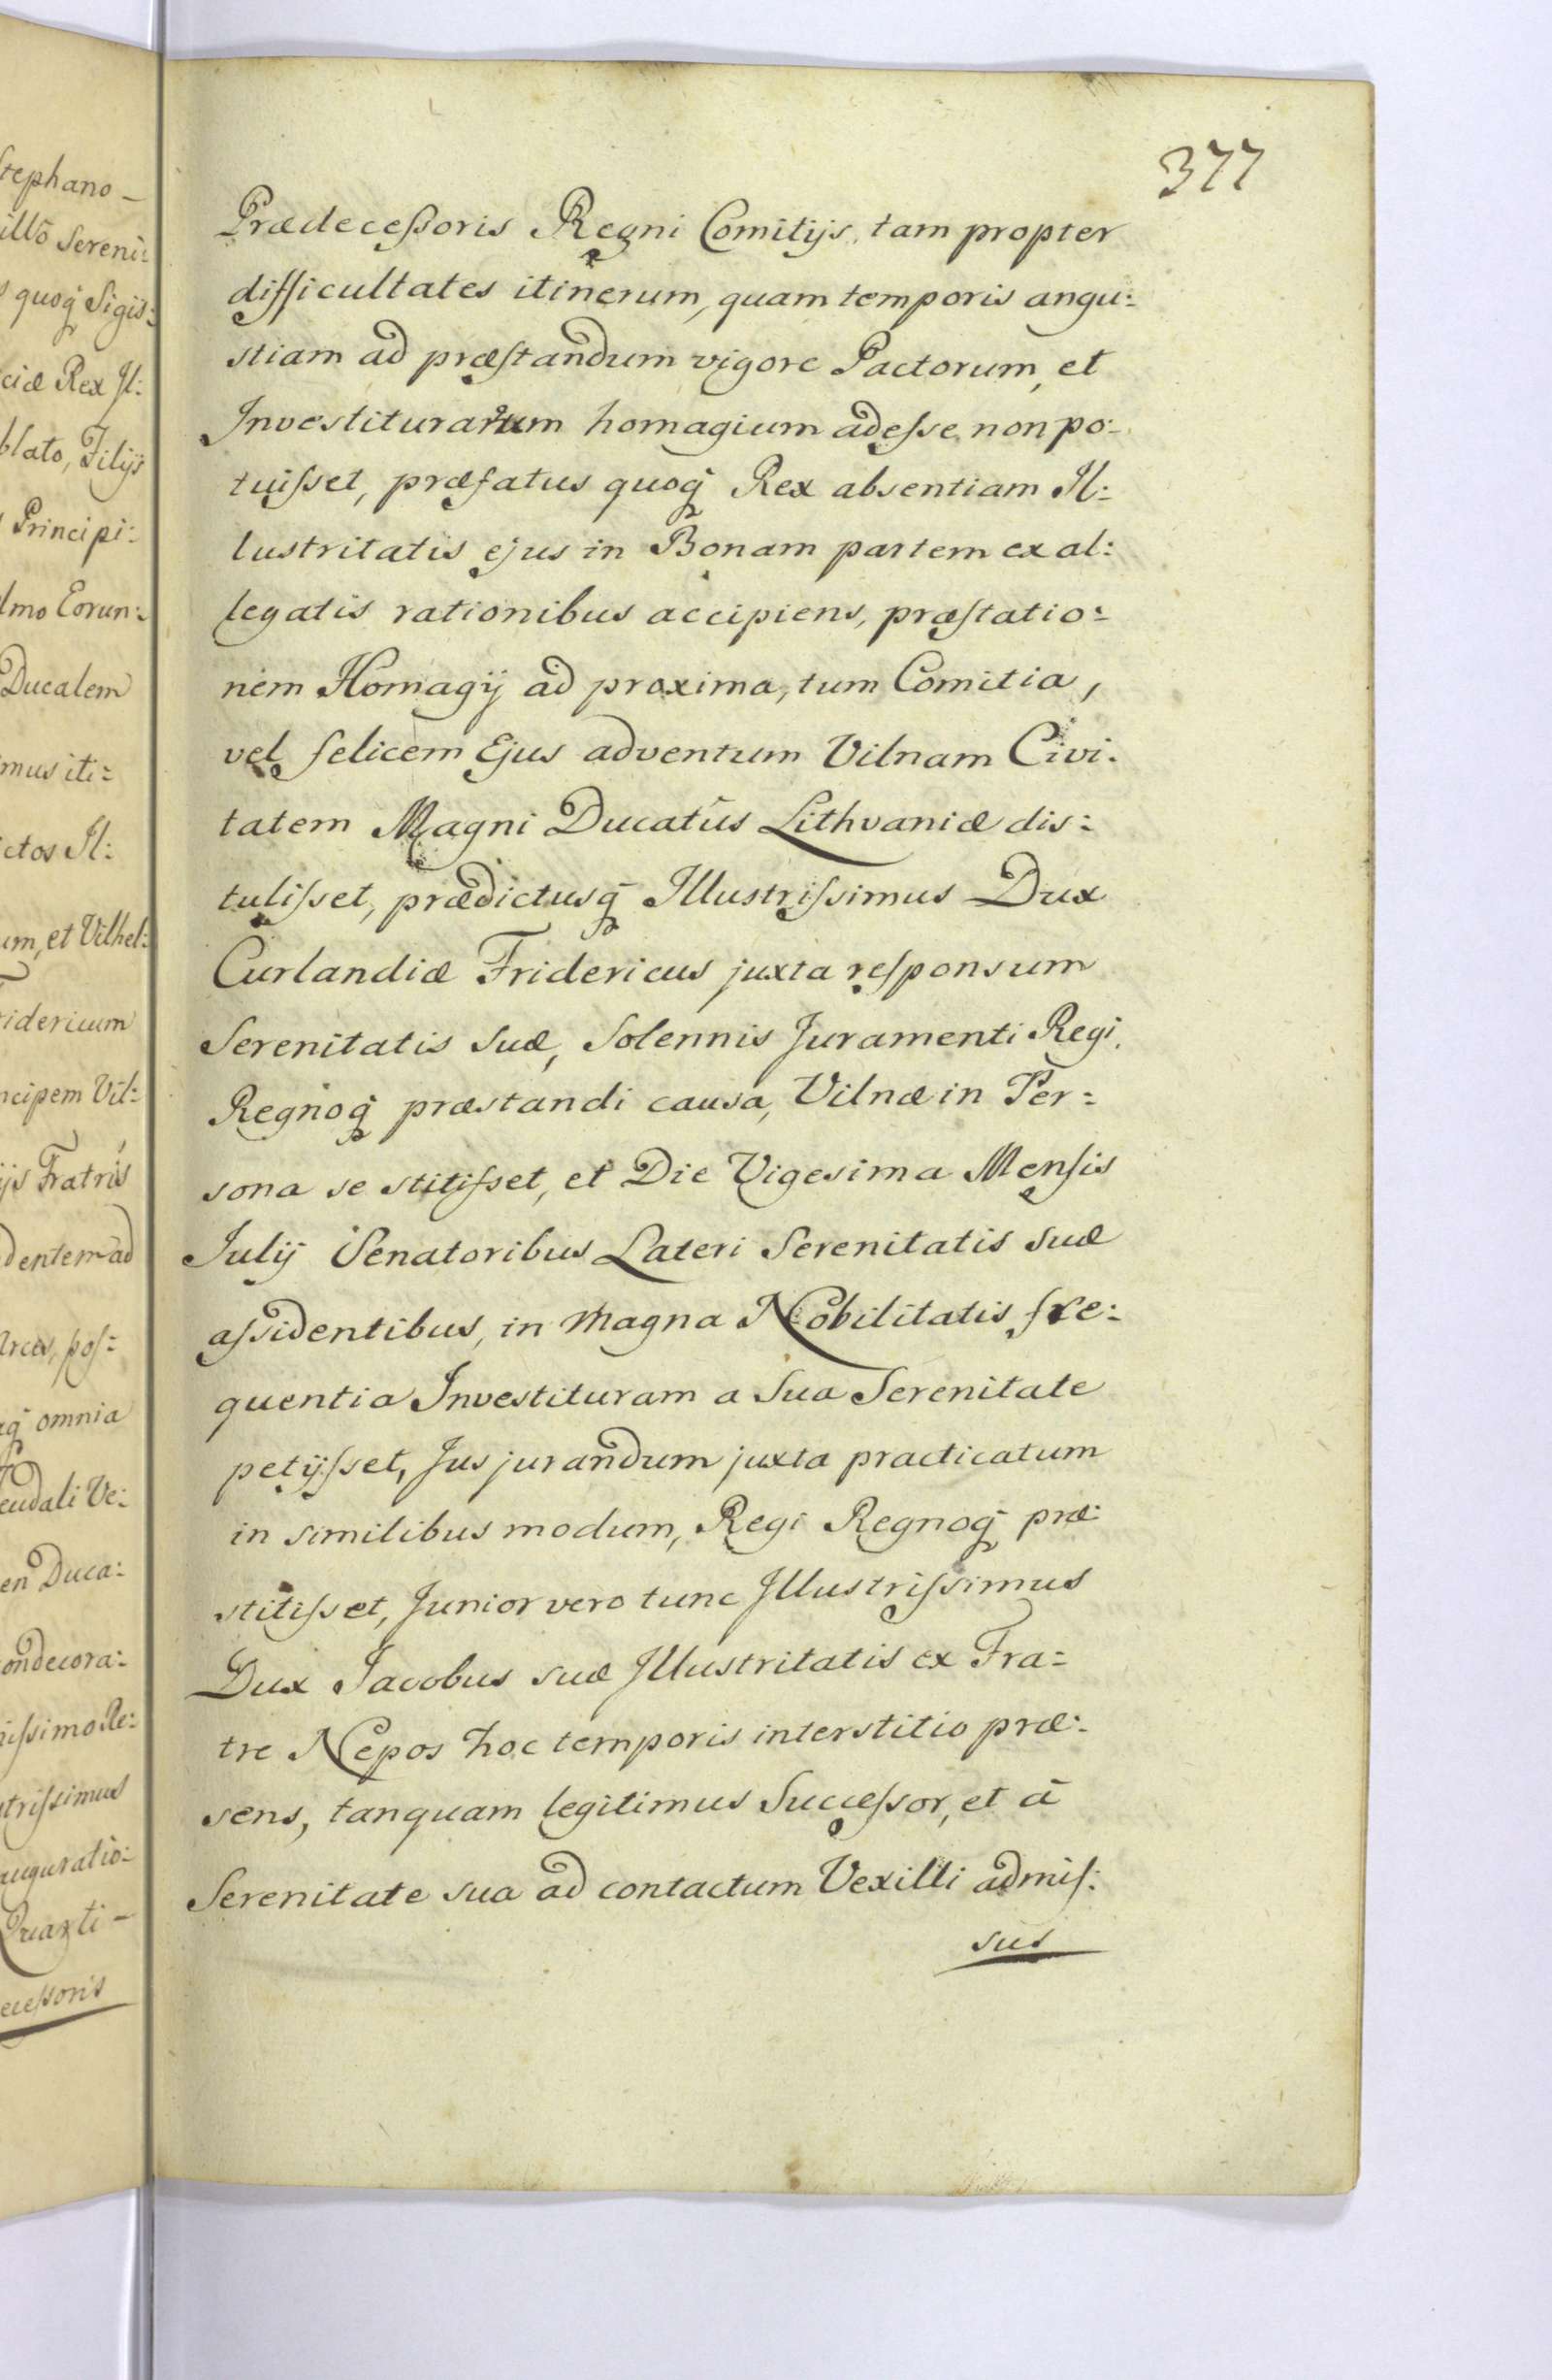 377
Prædecessoris Regni Comitijs, tam propter
difficultates itinerum, quam temporis angu:
stiam ad præstandum vigore Pactorum, et
Investiturarum homagium adesse non po:
tuisset, præfatus quoq̃ Rex absentiam Il:
lustritatis ejus in Bonam partem ex al:
legatis rationibus accipiens, præstatio:
nem Homagij ad proxima, tum Comitia,
vel felicem Ejus adventum Vilnam Civi:
tatem Magni Ducatûs Lithvaniæ dis:
tulisset, prædictusq̃ Illustrissimus Dux
Curlandiæ Fridericus juxta responsum
Serenitatis suæ, Solennis Juramenti Regi,
Regnoq̃ præstandi causa, Vilnæ in Per:
sona se stitisset, et Die Vigesima Mensis
Julij Senatoribus Lateri Serenitatis suæ
assidentibus, in Magna Nobilitatis fre:
quentia Investituram a Sua Serenitate
petijsset, Jus jurandum juxta practicatum
in similibus modum, Regi Regnoq̃ præ:
stitisset, Junior vero tunc Illustrissimus
Dux Jacobus suæ Illustritatis ex Fra:
tre Nepos hoc temporis interstitio præ:
sens, tanquam legitimus Successor, et à
Serenitate sua ad contactum Vexilli admis:
sus
tephano -
illõ Sereni:
quoq̃ Sigis:
ciæ Rex Il:
blato, Filijs
Principi:
lmo Eorun:
Ducalem
mus iti:
ctos Il:
um, et Vilhel:
idericum
ncipem Vil:
ijs Fratris
dentem ad
Arces, pos:
q̃ omnia
eudali Ve:
en Duca:
ondecora:
issimo Re:
trissimus
auguratio:
Quarti -
ecessoris